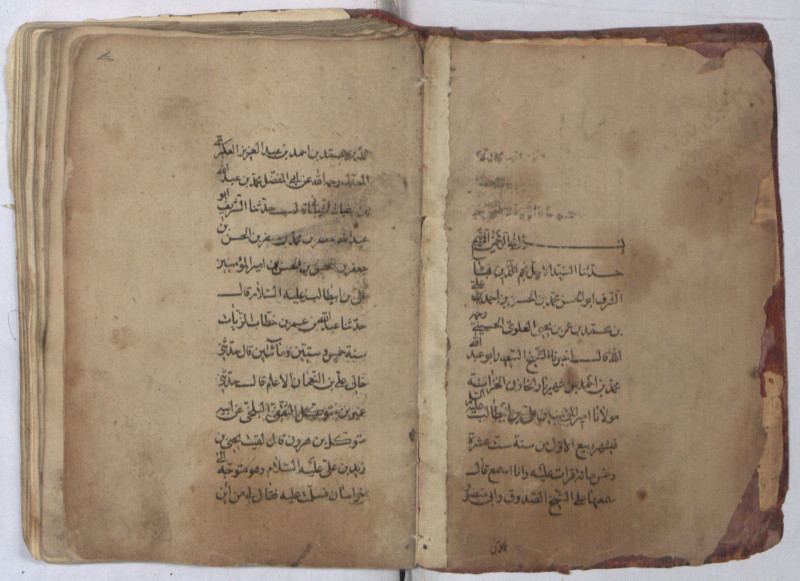 بسم الله الرحمن الرحيم
حدثنا السيد الاجل نجم الدين بهاء
الشرف ابو الحسن محمد بن الحسن بن احمد بن علي
بن محمد بن عمر بن يحيى العلوي الحسيني رحمه
الله قال اخبرنا الشيخ السعيد ابو عبد الله
محمد بن احمد بن شهريار الخازن لخزانة
مولانا امير المؤمنين علي بن ابي طالب عليه السلام
في شهر ربيع الاول من سنة ست عشرة
وخمس مائة قراءة عليه وانا اسمع قال
سمعتها على الشيخ الصدوق ابي منصور
محمد بن محمد بن احمد بن عبد العزيز العكبري
المعدل رحمه الله عن ابي المفضل محمد بن عبد الله
بن قال حدثنا الشريف ابو
عبد الله جعفر بن محمد بن جعفر بن الحسن بن
جعفر بن الحسن بن الحسن بن امير المؤمنين
علي بن ابيطالب عليه السلام قال
حدثنا عبد الله بن عمر بن خطاب الزيات
سنة خمس وستين ومأتين قال حدثني
خالي علي بن النعمان الاعلم قال حدثني
عمير بن متوكل الثقفي البلخي عن ابيه
متوكل بن هرون قال لقيت يحيى بن
زيد بن علي عليه السلام وهو متوجه الى
خراسان فسلمت عليه فقال لي من اين